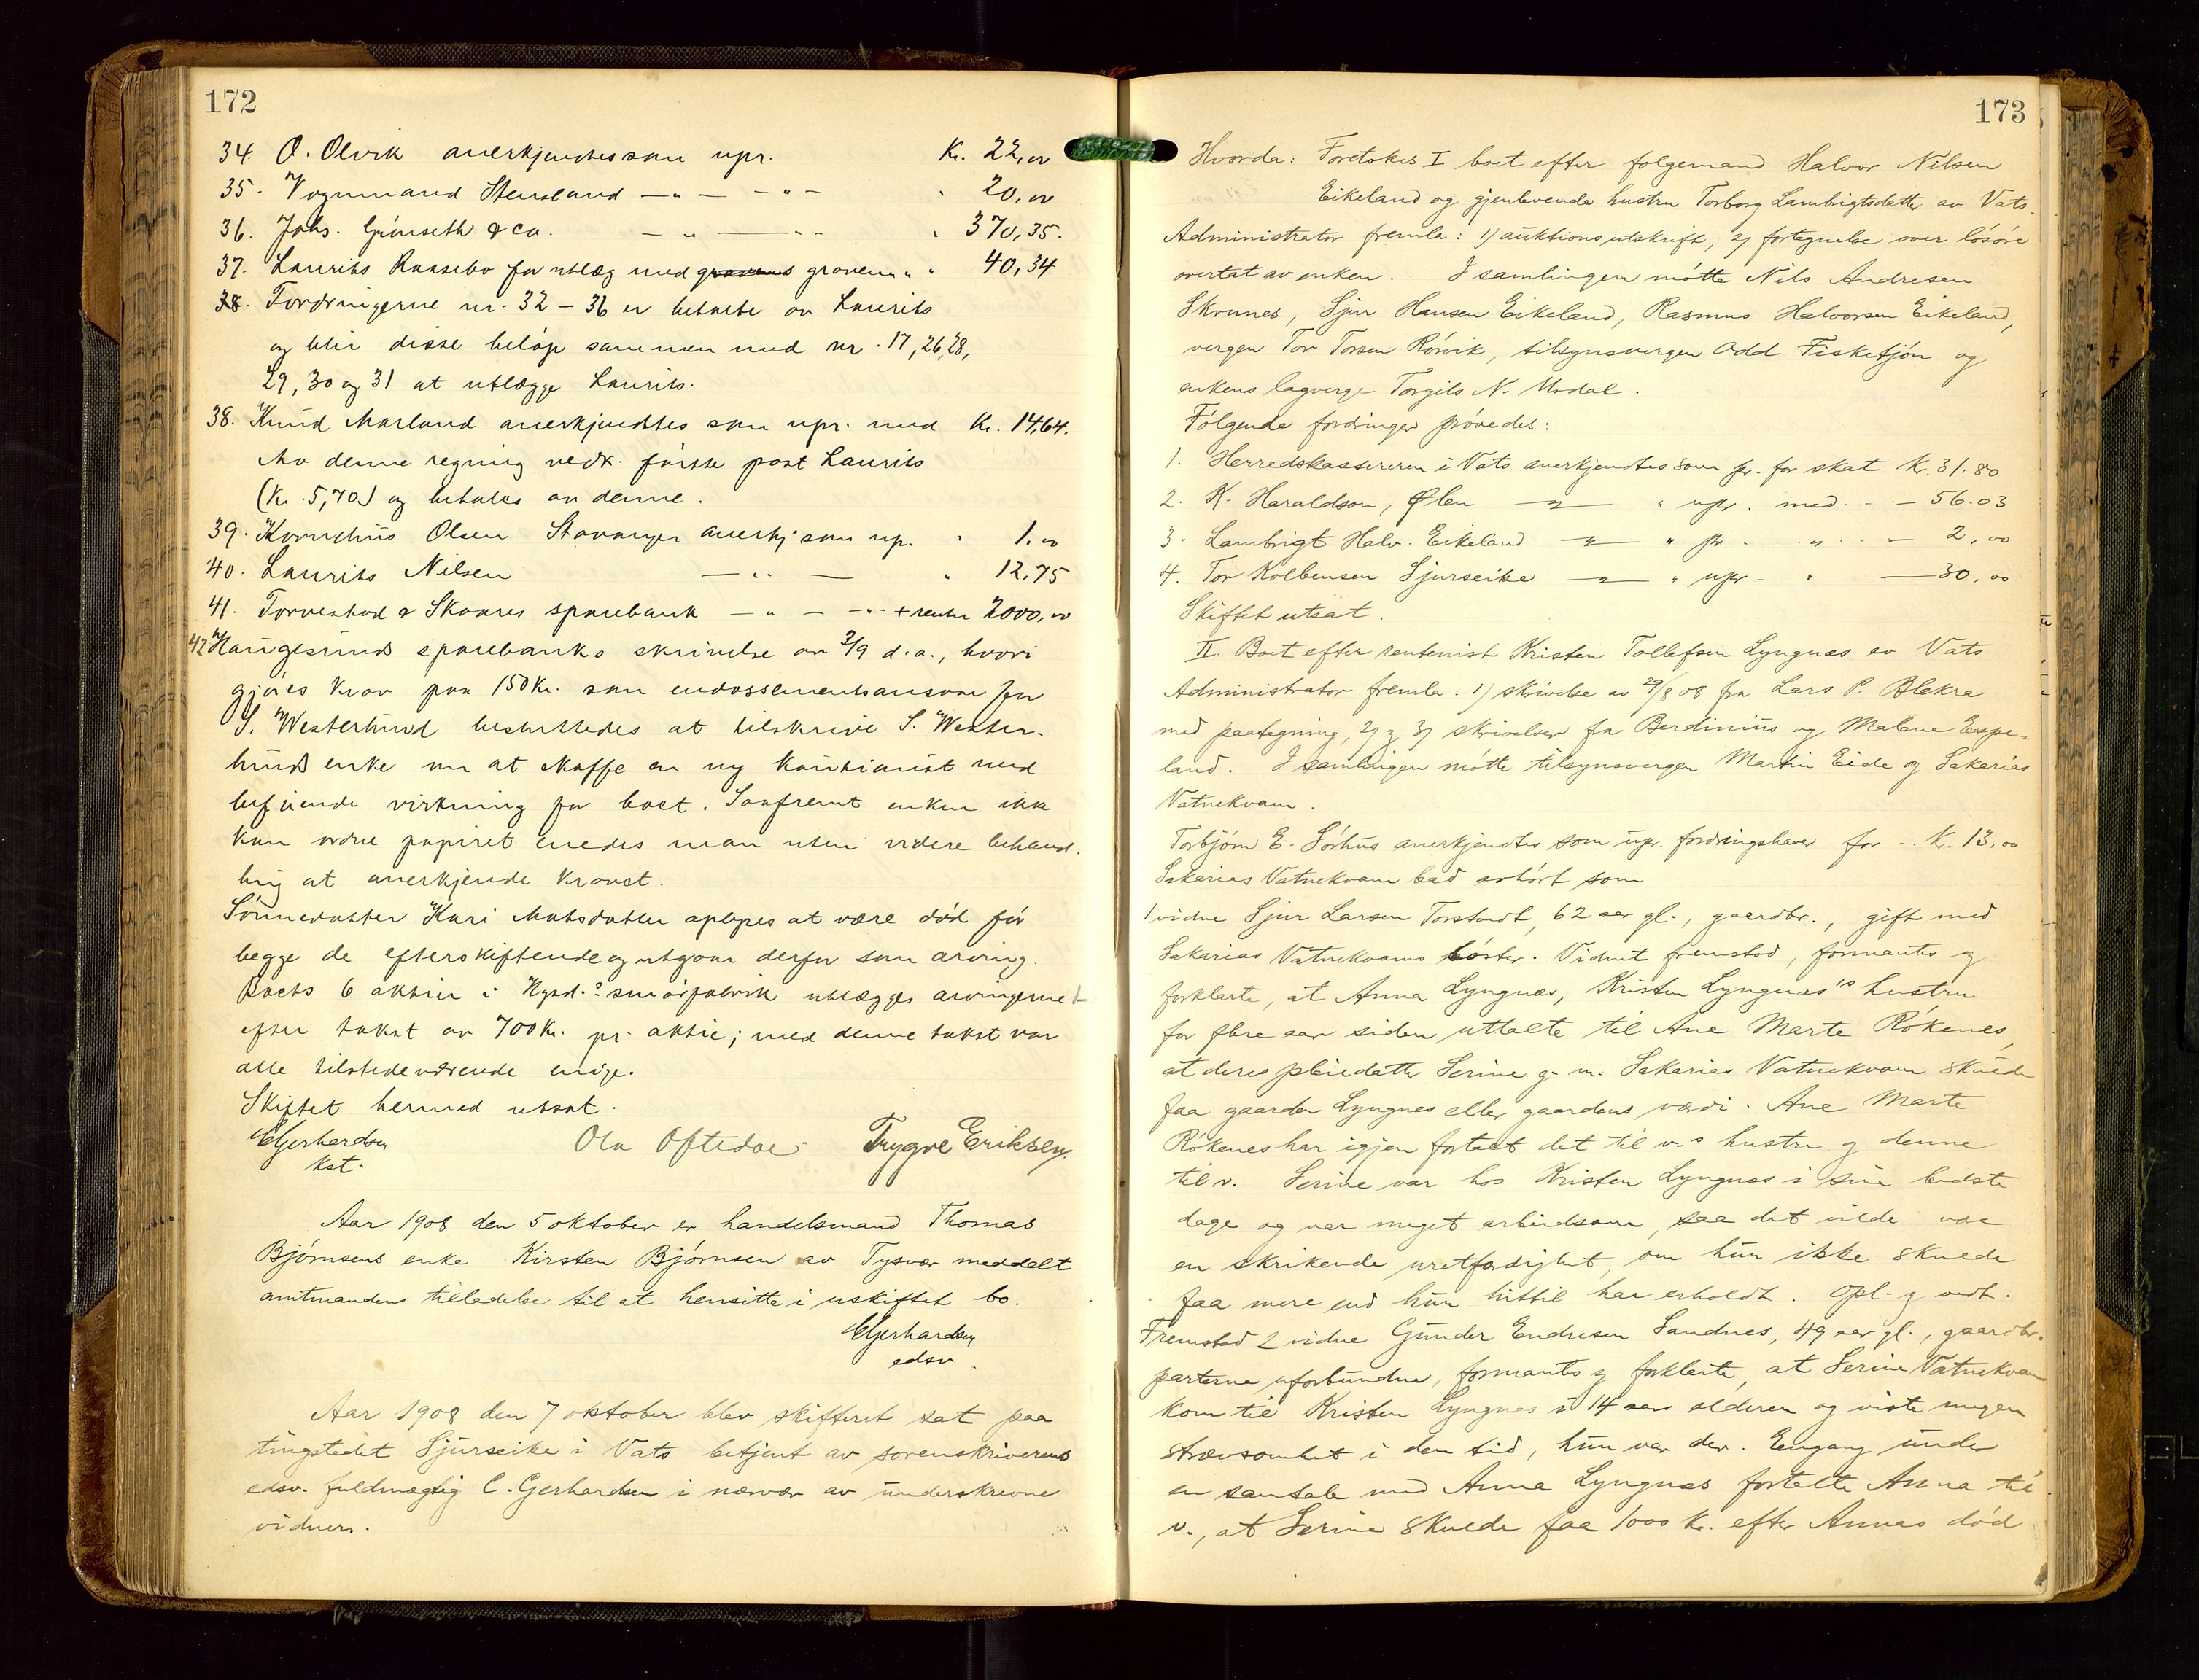 172
34. O. Olvik anerkjendtes som upr. Kr. 22,00
35. Vognmand Stensland —„— —„— „ 20,00
36. Johs. Grönseth & Co. —„— —„— „ 370,35.
37. Laurits Raasebo for utlæg med graven „ „ 40,34
38. Fordringerne nr. 32 – 36 er betalte av Laurits
og blir disse beløp sammen med nr. 17, 26, 28,
29, 30 og 31 at utlægge Laurits.
38. Knud Markand anerkjendtes som upr. med Kr. 14,64.
Av denne regning vedk. første post Laurits
(Kr. 5,70) og betales av denne.
39. Kornelius Olsen Stavanger anerkj. som up. „ 1,00
40. Laurits Nilsen —„— „ 12,75
41. Torvestad & Skaares sparebank —„— —„— + renter 2000,00
42 Haugesunds sparebanks skrivelse av 3/9 d.a., hvori
gjøres krav paa 150 Kr. som endossementsansvar for
S. Westerlund besluttedes at tilskrive S. Wester-
lunds enke om at skaffe en ny kautionist med
befriende virkning for boet. Saafremt enken ikke
kan ordne papiret enedes man uten videre behand-
ling at anerkjende kravet.
Sønnedatter Kari Matsdatter oplyses at være død før
begge de efterskiftende og utgaar derfor som arving.
Boets 6 aktier i Hgsd.s smørfabrik utlægges arvingerne
efter takst av 700 Kr. pr. aktie; med denne takst var
alle tilstedeværende enige.
Skiftet hermed utsat.
CGerhardsen Ola Oftedal Trygve Eriksen
kst.
Aar 1908 den 5 oktober er handelsmand Thomas
Bjørnsens enke Kirsten Bjørnsen av Tysvær meddelt
amtmandens tilladelse til at hensitte i uskiftet bo.
CGerhardsen
edsv.
Aar 1908 den 7 oktober blev skifteret sat paa
tingstedet Sjurseike i Vats betjent av sorenskriverens
edsv. fuldmægtig C. Gerhardsen i nærvær av underskrevne
vidner.
173
Hvorda: Foretokes I boet efter følgemand Halvor Nilsen
Eikeland og gjenlevende hustru Torborg Lambrigtsdatter av Vats.
Administrator fremla: 1) auktionsutskrift, 2) fortegnelse over løsøre
overtat av enken. I samlingen møtte Nils Andresen
Skrunes, Sjur Hansen Eikeland, Rasmus Halvorsen Eikeland,
vergen Tor Torsen Rørvik, tilsynsvergen Odd Fisketjøn og
enkens lagverge Torgils N. Mrdal.
Følgende fordringer prøvedes:
1. Herredskassereren i Vats anerkjendtes som pr. for skat Kr. 31.80
2. K. Haraldson, Ølen —„— „ upr. med - - — 56.03
3. Lambrigt Halv. Eikeland —„— „ pr. „ - - — 2,00
4. Tor Kolbensen Sjurseike —„— „ upr. „ — 30,00
Skiftet utsat.
II. Boet efter rentenist Kristen Tollefsen Lyngnæs av Vats
Administrator fremla: 1) skrivelse av 29/8 08 fra Lars P. Blekra
med paategning, 2) og 3) skrivelser fra Berdinius og Malene Espe-
land. I samlingen møtte tilsynsvergen Martin Eide og Sakarias
Vatnekvam.
Torbjørn E. Sørhus anerkjendtes som upr. fordringshaver for - - Kr. 13,00
Sakarias Vatnekvam bad avhørt som
1 vidne Sjur Larsen Torstvedt, 62 aar gl., gaardbr., gift med
Sakarias Vatnekvams søster. Vidnet fremstod, formantes og
forklarte, at Anna Lyngnæs, Kristen Lyngnæs's hustru
for flere aar siden uttalte til Ane Marte Røkenes,
at deres pleiedatter Serine g. m. Sakarias Vatnekvam skulde
faa gaarden Lyngnes eller gaardens værdi. Ane Marte
Røkenes har igjen fortalt det til v.s hustru og denne
til v. Serine var hos Kristen Lyngnæs i sine bedste
dage og var meget arbeidsom, saa det vilde være
en skrikende uretfærdighet, om hun ikke skulde
faa mere end hun hittil har erholdt. Opl. og vedt.
Fremstod 2 vidne Gunder Endresen Sandnes, 49 aar gl., gaardbr.
parterne uforbunden, formantes og forklarte, at Serine Vatnekvam
kom til Kristen Lyngnes i 14 aars alderen og viste megen
strævsomhet i den tid, hun var der. Engang under
en samtale med Anna Lyngnæs fortalte Anna til
v., at Serine skulde faa 1000 Kr. efter Annas død